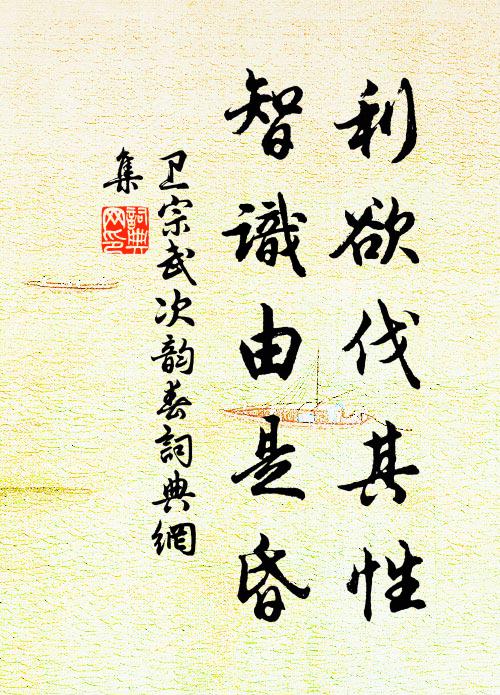 利欲伐其性
智識由是昏
卫宗武次韵春詞典網
集
詞典网印